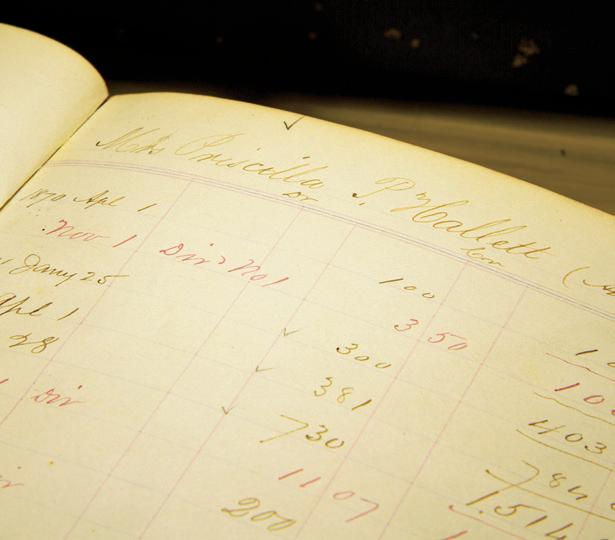 Mrs Priscilla P. Hallett
Dr Cr
1870 Apl 1 100
Nov 1 Div No 1 3 50
Jany 25 300
Apl 1 381 403
28 730 784
Div 1.514
1107
200